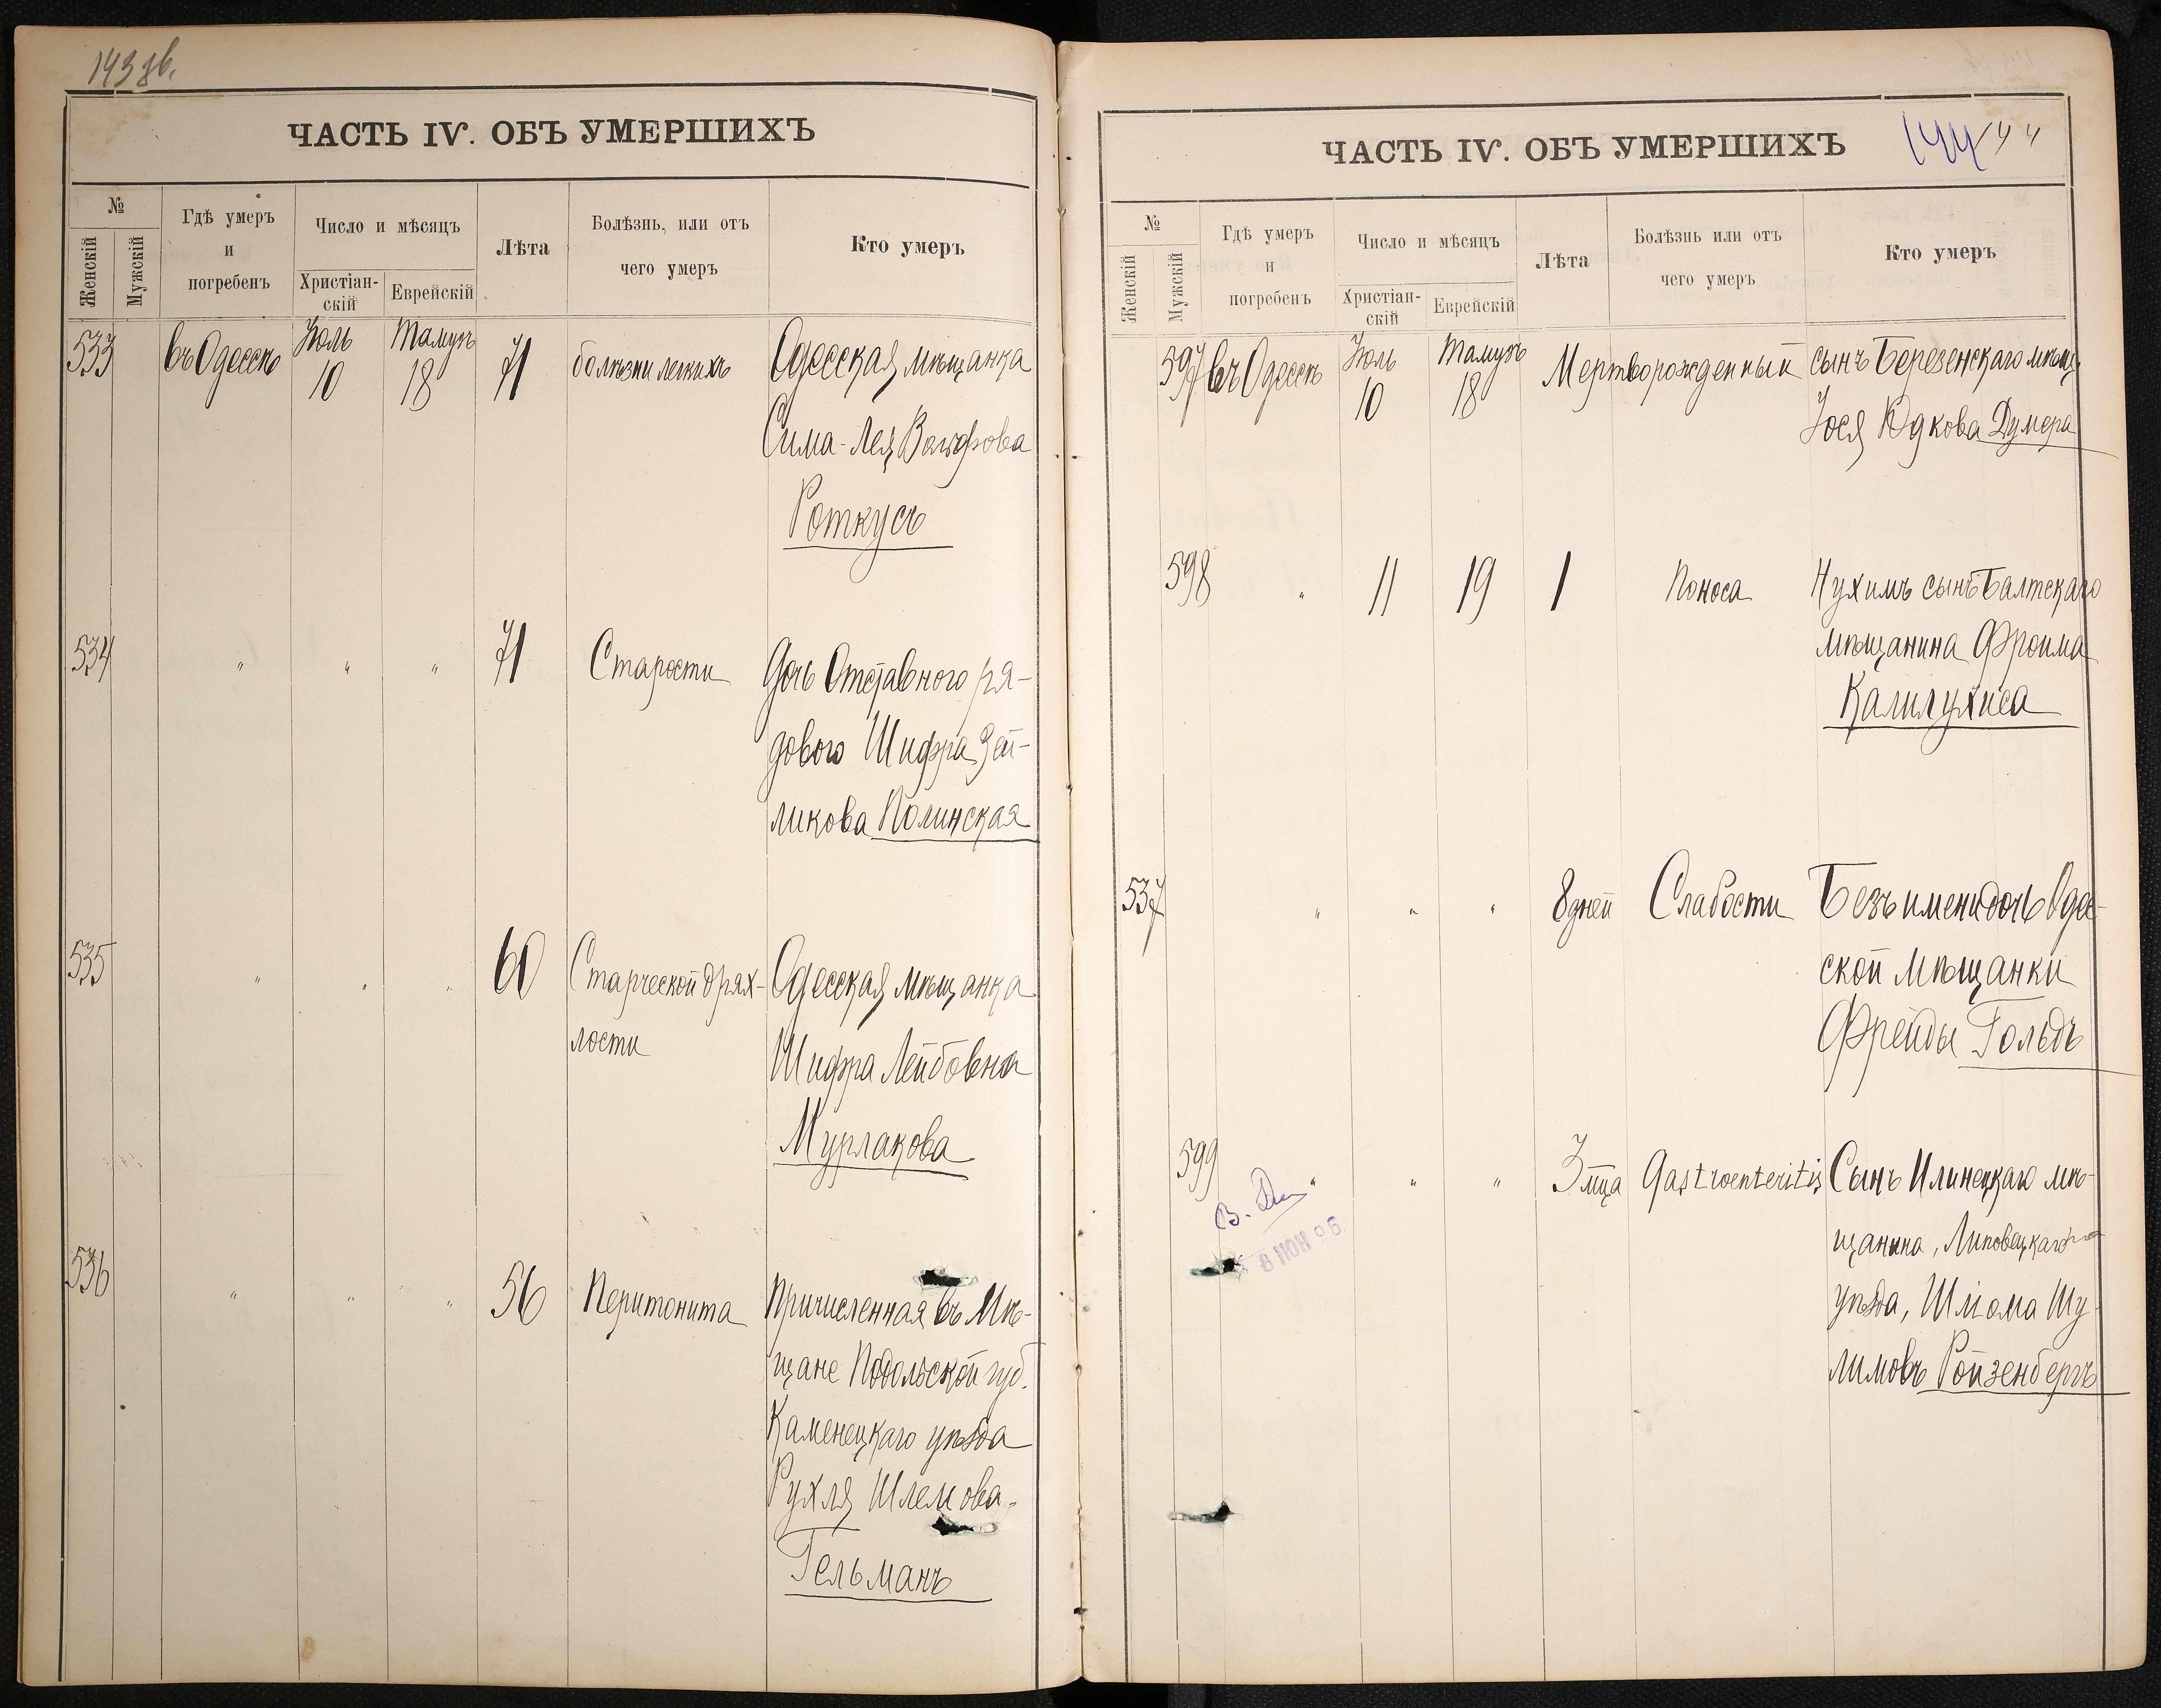 143 об.
ЧАСТЬ IV. ОБЪ УМЕРШИХЪ
№
Женскій
Мужскій
Гдѣ умеръ
и
погребенъ
Число и мѣсяцъ
Христіан-
скій
Еврейскій
Лѣта
Болѣзнь, или отъ
чего умеръ
Кто умеръ
533 въ Одессѣ Іюль 10 Тамузъ 18 71 болѣзни легкихъ Одесская мѣщанка
Сима-Лея Вольфова
Роткусъ
534 " " " 71 Старости Дочь Отставного ря-
дового Шифра Зей-
ликова Полинская
535 " " " 60 Старческой дрях- Одесская мѣщанка
лости Шифра Лейбовна
Мурлакова
536 " " " 56 Перитонита Причисленная въ Мѣ-
щане Подольской губ.
Каменецкаго уѣзда
Рухля Шлемова
Гельманъ
144 144
ЧАСТЬ IV. ОБЪ УМЕРШИХЪ
№
Женскій
Мужскій
Гдѣ умеръ
и
погребенъ
Число и мѣсяцъ
Христіан-
скій
Еврейскій
Лѣта
Болѣзнь или отъ
чего умеръ
Кто умеръ
597 въ Одессѣ Іюль 10 Тамузъ 18 Мертворожденный сынъ Березенскаго мѣщ.
Іося Юдкова Думера
598 " 11 19 1 Поноса Нухимъ сынъ Балтскаго
мѣщанина Фроима
Калилухиса
537 " " " 8 дней Слабости Безъ имени дочь Оде-
ской мѣщанки
Фрейды Гольдъ
599 " " " 3 мца Gastroenteritis Сынъ Илинецкаго мѣ-
щанина, Липовецкаго
уѣзда, Шлома Шу-
лимовъ Ройзенбергъ
8 ИЮН 96